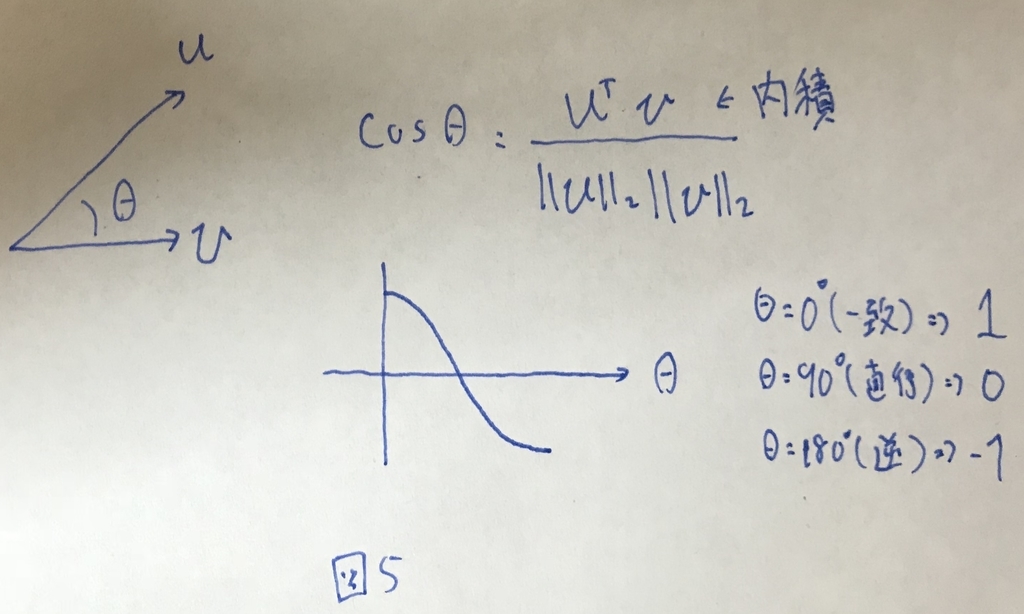 u
θ
v
cos θ = uᵀv ← 内積
‖u‖₂ ‖v‖₂
θ
θ=0°(一致)⇒ 1
θ=90°(直行)⇒ 0
θ=180°(逆)⇒ -1
図5